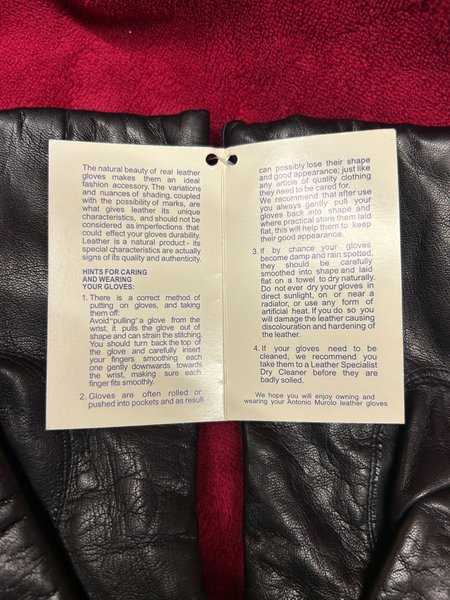 The natural beauty of real leather
gloves makes them an ideal
fashion accessory. The variations
and nuances of shading, coupled
with the possibility of marks, are
what gives leather its unique
characteristics, and should not be
considered as imperfections that
could effect your gloves durability.
Leather is a natural product - its
special characteristics are actually
signs of its quality and authenticity.
HINTS FOR CARING
AND WEARING
YOUR GLOVES:
1. There is a correct method of
putting on gloves, and taking
them off:
Avoid "pulling" a glove from the
wrist, it pulls the glove out of
shape and can strain the stitching.
You should turn back the top of
the glove and carefully insert
your fingers smoothing each
one gently downwards towards
the wrist, making sure each
finger fits smoothly.
2. Gloves are often rolled or
pushed into pockets and as result
can possibly lose their shape
and good appearance; just like
any article of quality clothing
they need to be cared for.
We recommend that after use
you always gently pull your
gloves back into shape and
where practical store them laid
flat, this will help them to keep
their good appearance.
3. If by chance your gloves
become damp and rain spotted,
they should be carefully
smoothed into shape and laid
flat on a towel to dry naturally.
Do not ever dry your gloves in
direct sunlight, on or near a
radiator, or use any form of
artificial heat. If you do so you
will damage the leather causing
discolouration and hardening of
the leather.
4. If your gloves need to be
cleaned, we recommend you
take them to a Leather Specialist
Dry Cleaner before they are
badly soiled.
We hope you will enjoy owning and
wearing your Antonio Murolo leather gloves